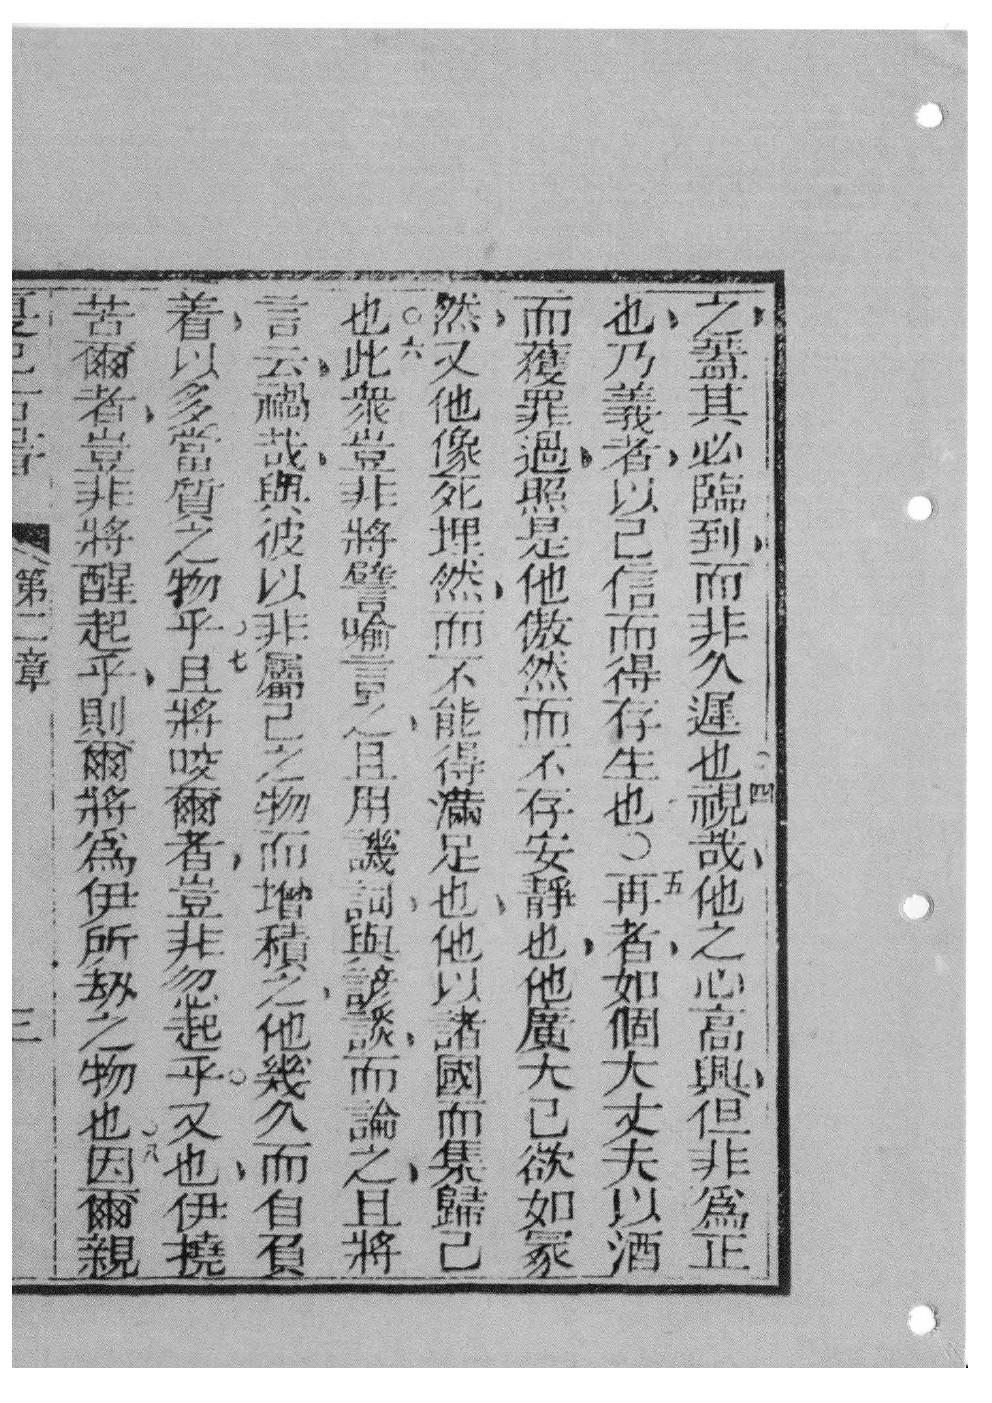 之蓋其必臨到而非久遲也○四視哉他之心高興但非為正
也乃義者以己信而得存生也○五再者如個大丈夫以酒
而獲罪過照是他傲然而不存安靜也他廣大己欲如冢
然又他像死埋然而不能得滿足也他以諸國而集歸己
也○六此衆豈非將譬喻言之且用譏詞與諺談而論之且將
言云禍哉與彼以非屬己之物而增積之他幾久而自負
着以多當質之物乎○七且將咬爾者豈非忽起乎又也伊撓
苦爾者豈非將醒起乎則爾將為伊所劫之物也○八因爾親
第二章
三